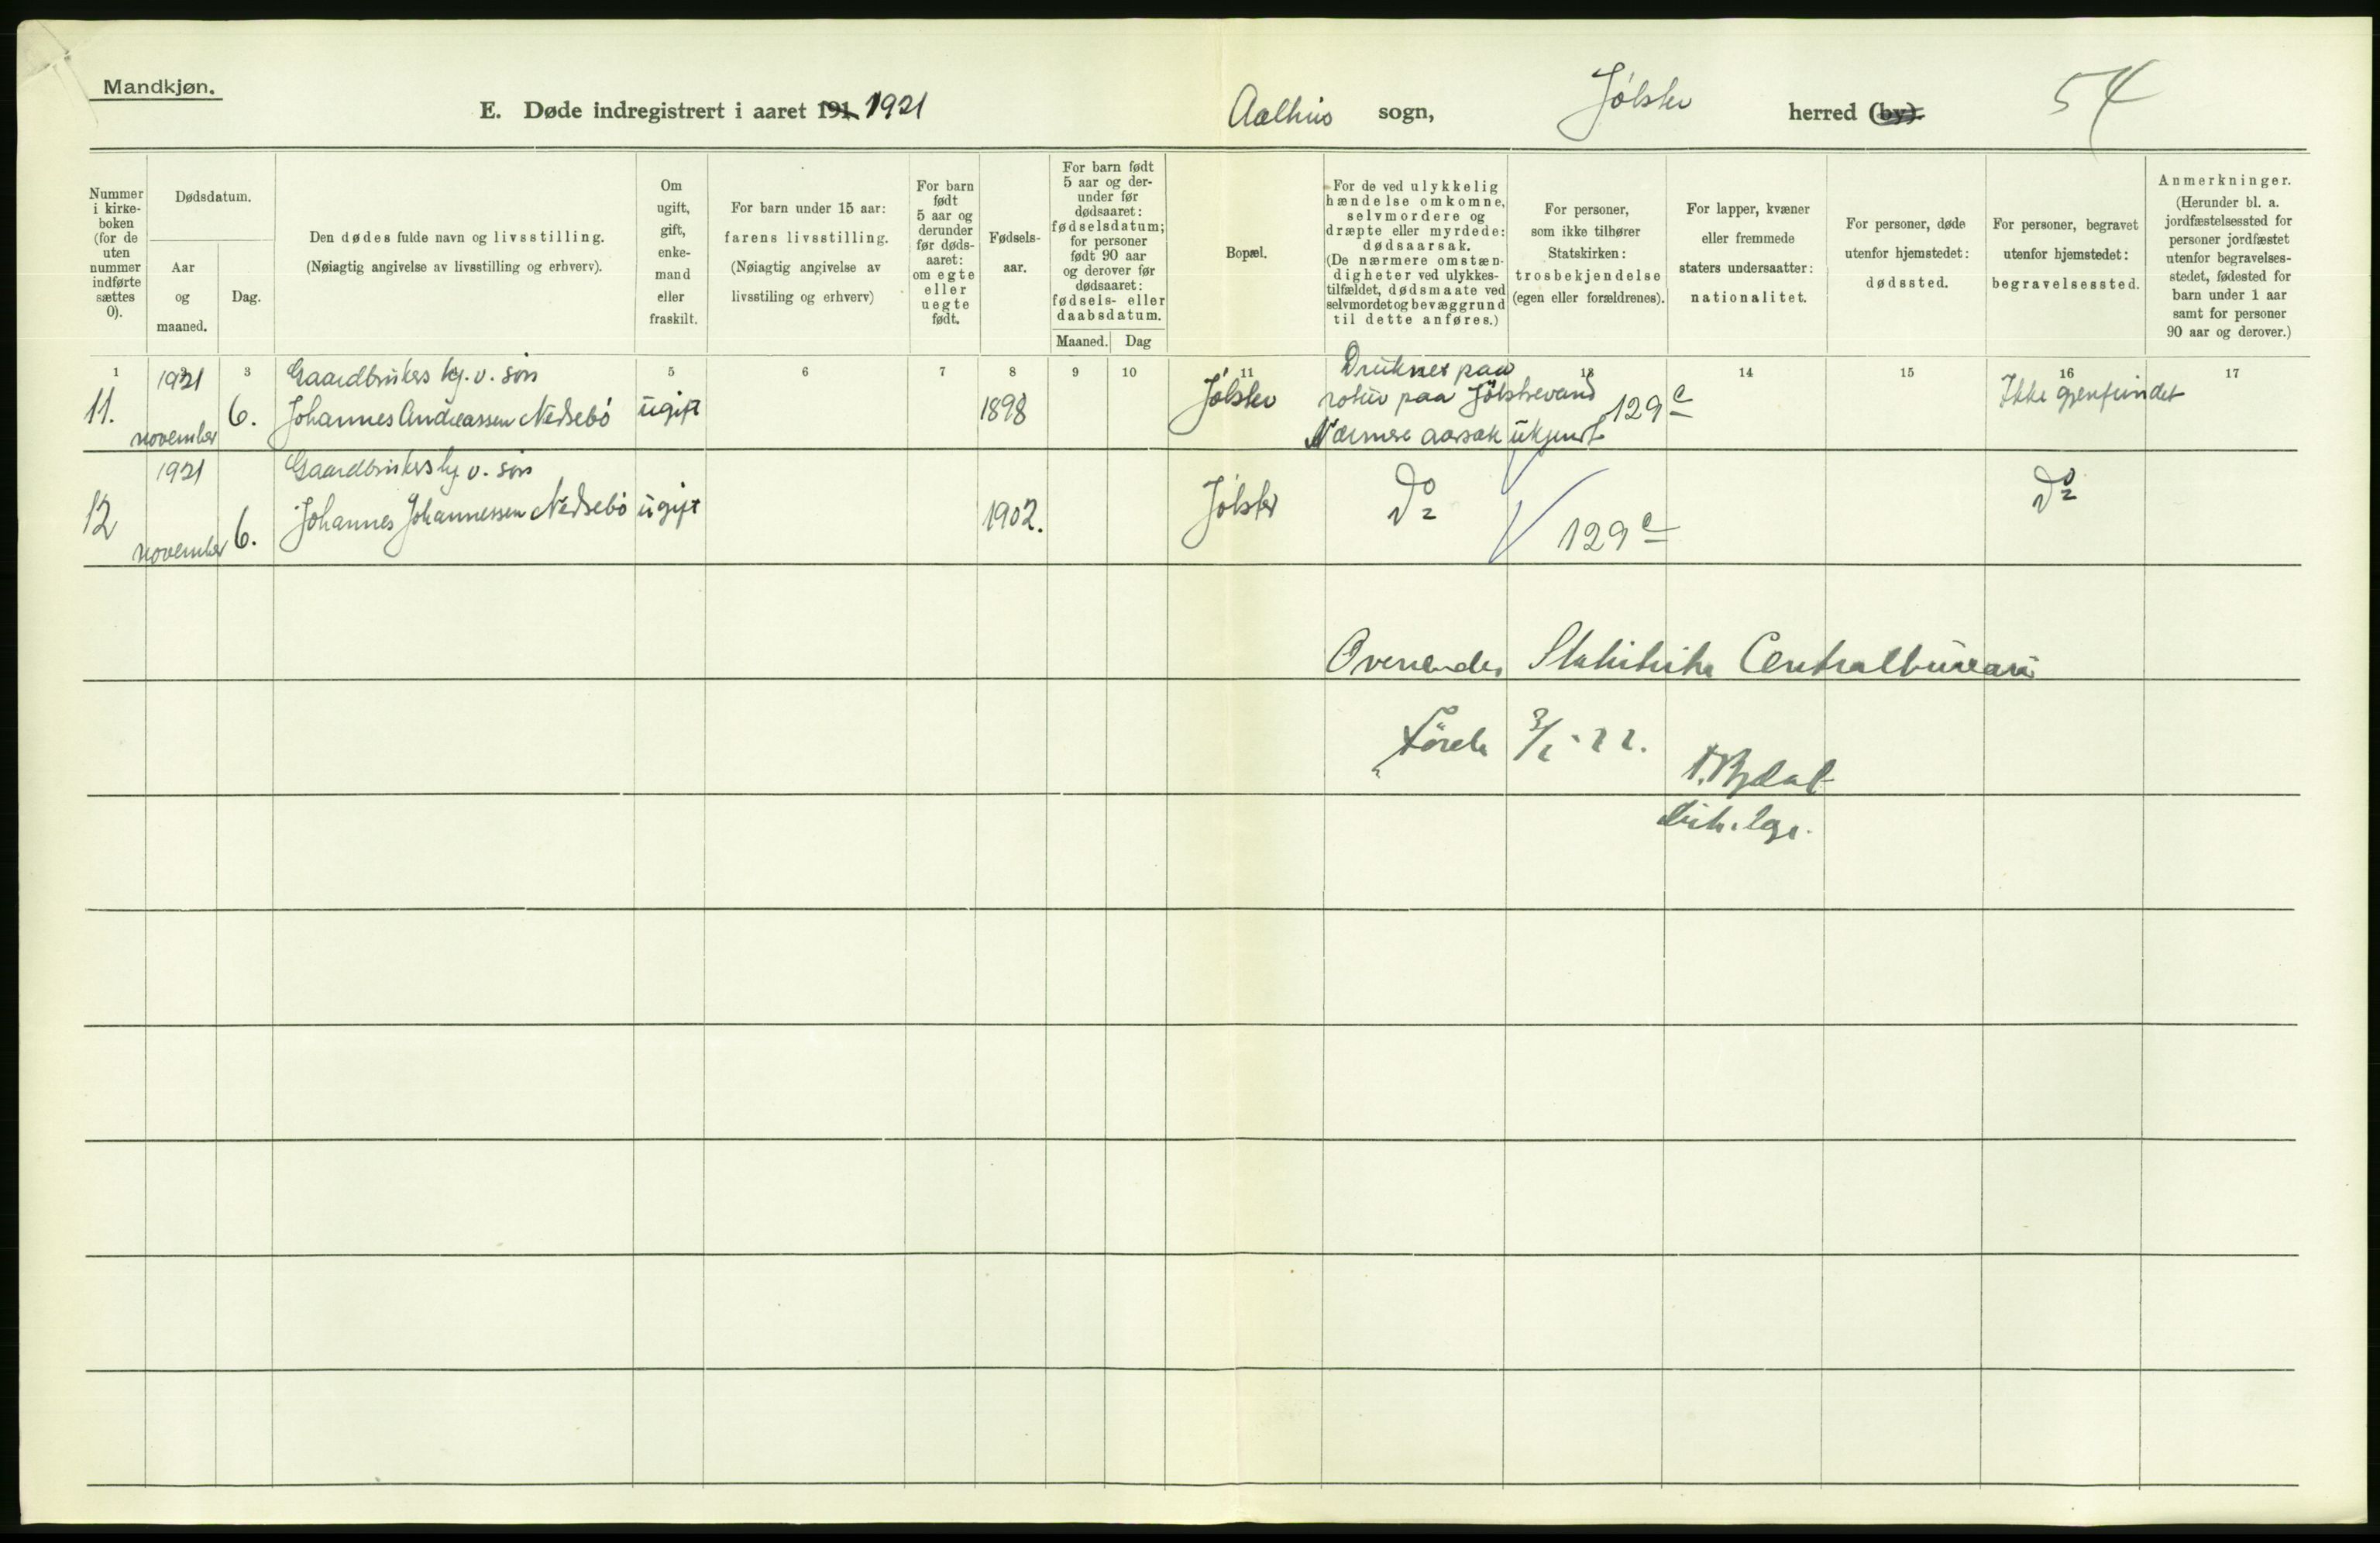 Mandkjøn.
E. Døde indregistrert i aaret 191 1921 Aalhus sogn, Jølster herred (by). 54
Nummer i kirke-boken (for de uten nummer indførte sættes 0).
Dødsdatum.
Aar og maaned.
Dag.
Den dødes fulde navn og livsstilling.
(Nøiagtig angivelse av livsstilling og erhverv).
Om ugift, gift, enke-mand eller fraskilt.
For barn under 15 aar:
farens livsstilling.
(Nøiagtig angivelse av
livsstiling og erhverv)
For barn født 5 aar og derunder før døds-aaret: om egte eller uegte født.
Fødsels-aar.
For barn født 5 aar og der-under før dødsaaret: fødselsdatum; for personer født 90 aar og derover før dødsaaret: fødsels- eller daabsdatum.
Maaned. Dag
Bopæl.
For de ved ulykkelig hændelse omkomne, selvmordere og dræpte eller myrdede: dødsaarsak.
(De nærmere omstæn-digheter ved ulykkes-tilfældet, dødsmaate ved selvmordet og bevæggrund til dette anføres.)
For personer, som ikke tilhører Statskirken: trosbekjendelse (egen eller forældrenes).
For lapper, kvæner eller fremmede staters undersaatter: nationalitet.
For personer, døde utenfor hjemstedet: dødssted.
For personer, begravet utenfor hjemstedet: begravelsessted.
Anmerkninger.
(Herunder bl. a. jordfæstelsessted for personer jordfæstet utenfor begravelses-stedet, fødested for barn under 1 aar samt for personer 90 aar og derover.)
1 3 5 6 7 8 9 10 11 13 14 15 16 17
1921 Gaardbrukers hj. v. søn Druknet paa
11. november 6. Johannes Andreassen Nedrebö ugift 1898 Jølster rotur paa Jölstrevand 129 c Ikke gjenfundet
Nærmere aarsak ukjendt
1921 Gaardbrukers hj. v. søn
12 november 6. Johannes Johannessen Nedrebö ugift 1902. Jølster do 129 c do
Oversendes Statistiske Centralbureau
Förde 3/1-22.